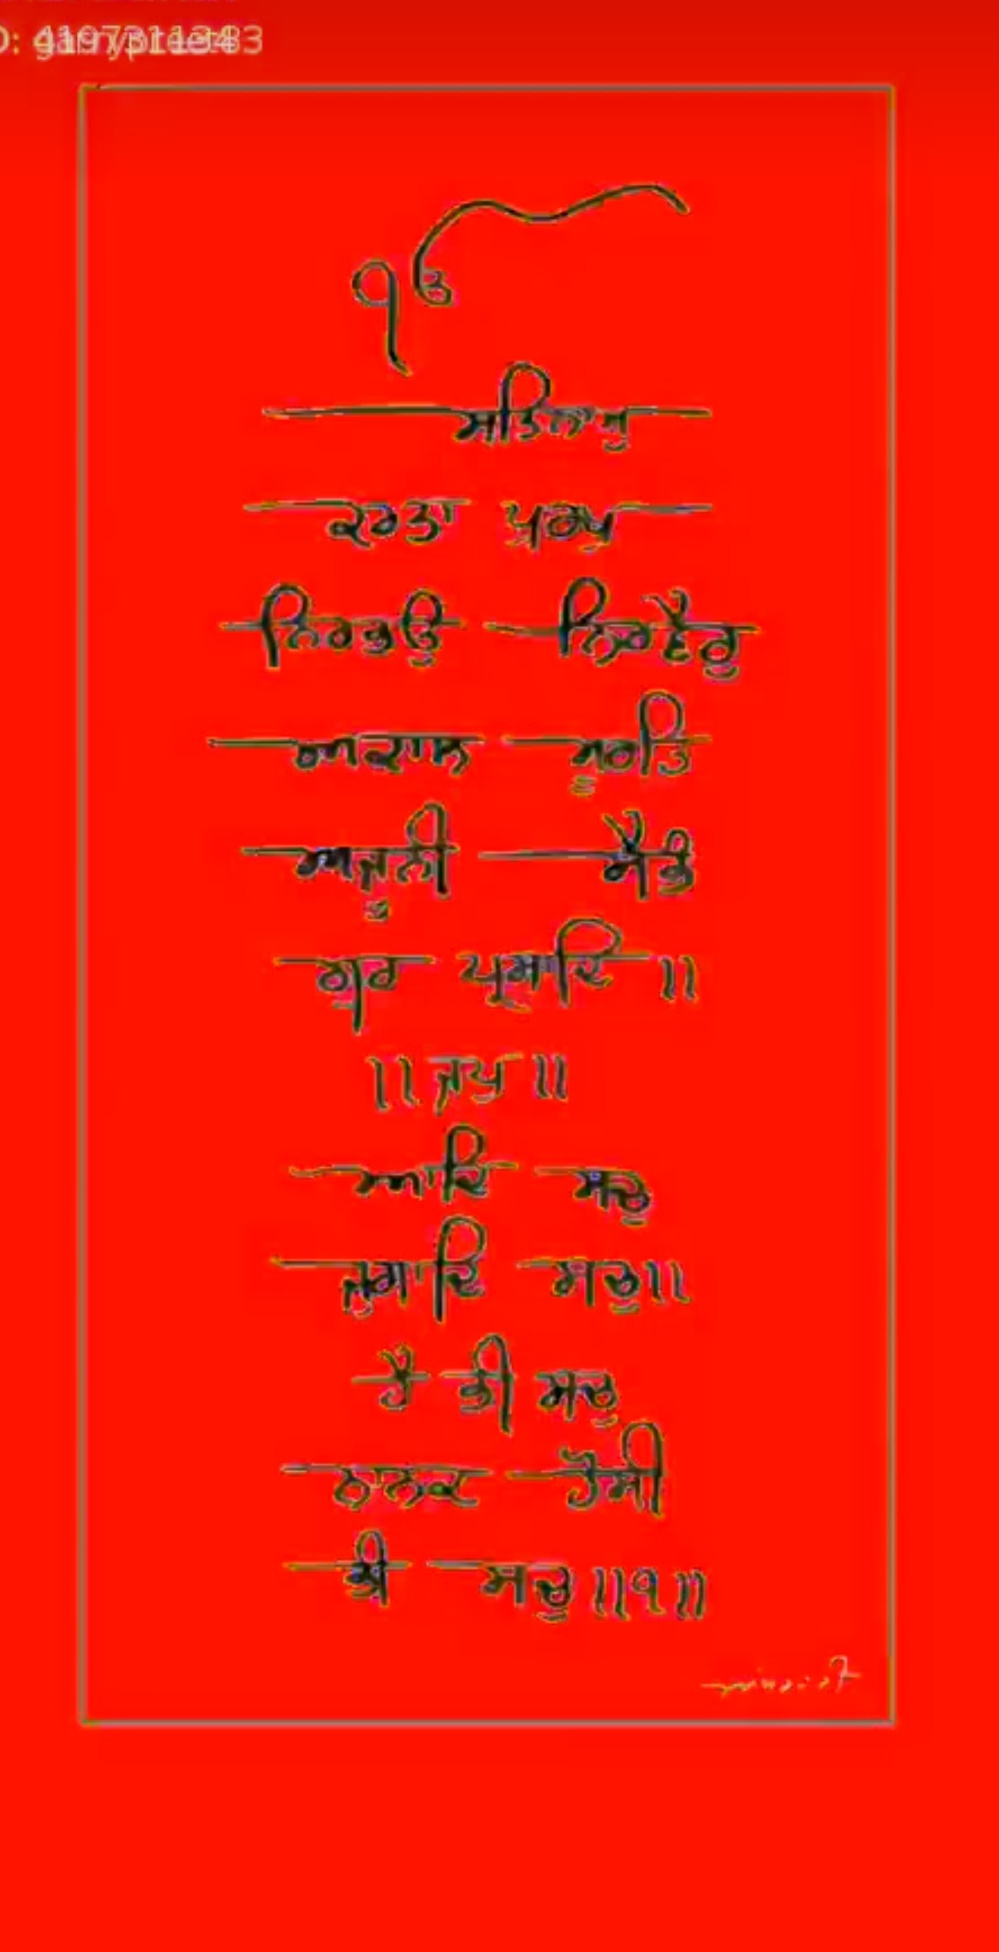 ੴ
ਸਤਿਨਾਮੁ
ਕਰਤਾ ਪੁਰਖੁ
ਨਿਰਭਉ ਨਿਰਵੈਰੁ
ਅਕਾਲ ਮੂਰਤਿ
ਅਜੂਨੀ ਸੈਭੰ
ਗੁਰ ਪ੍ਰਸਾਦਿ ॥
॥ ਜਪੁ ॥
ਆਦਿ ਸਚੁ
ਜੁਗਾਦਿ ਸਚੁ॥
ਹੈ ਭੀ ਸਚੁ
ਨਾਨਕ ਹੋਸੀ
ਭੀ ਸਚੁ ॥੧॥